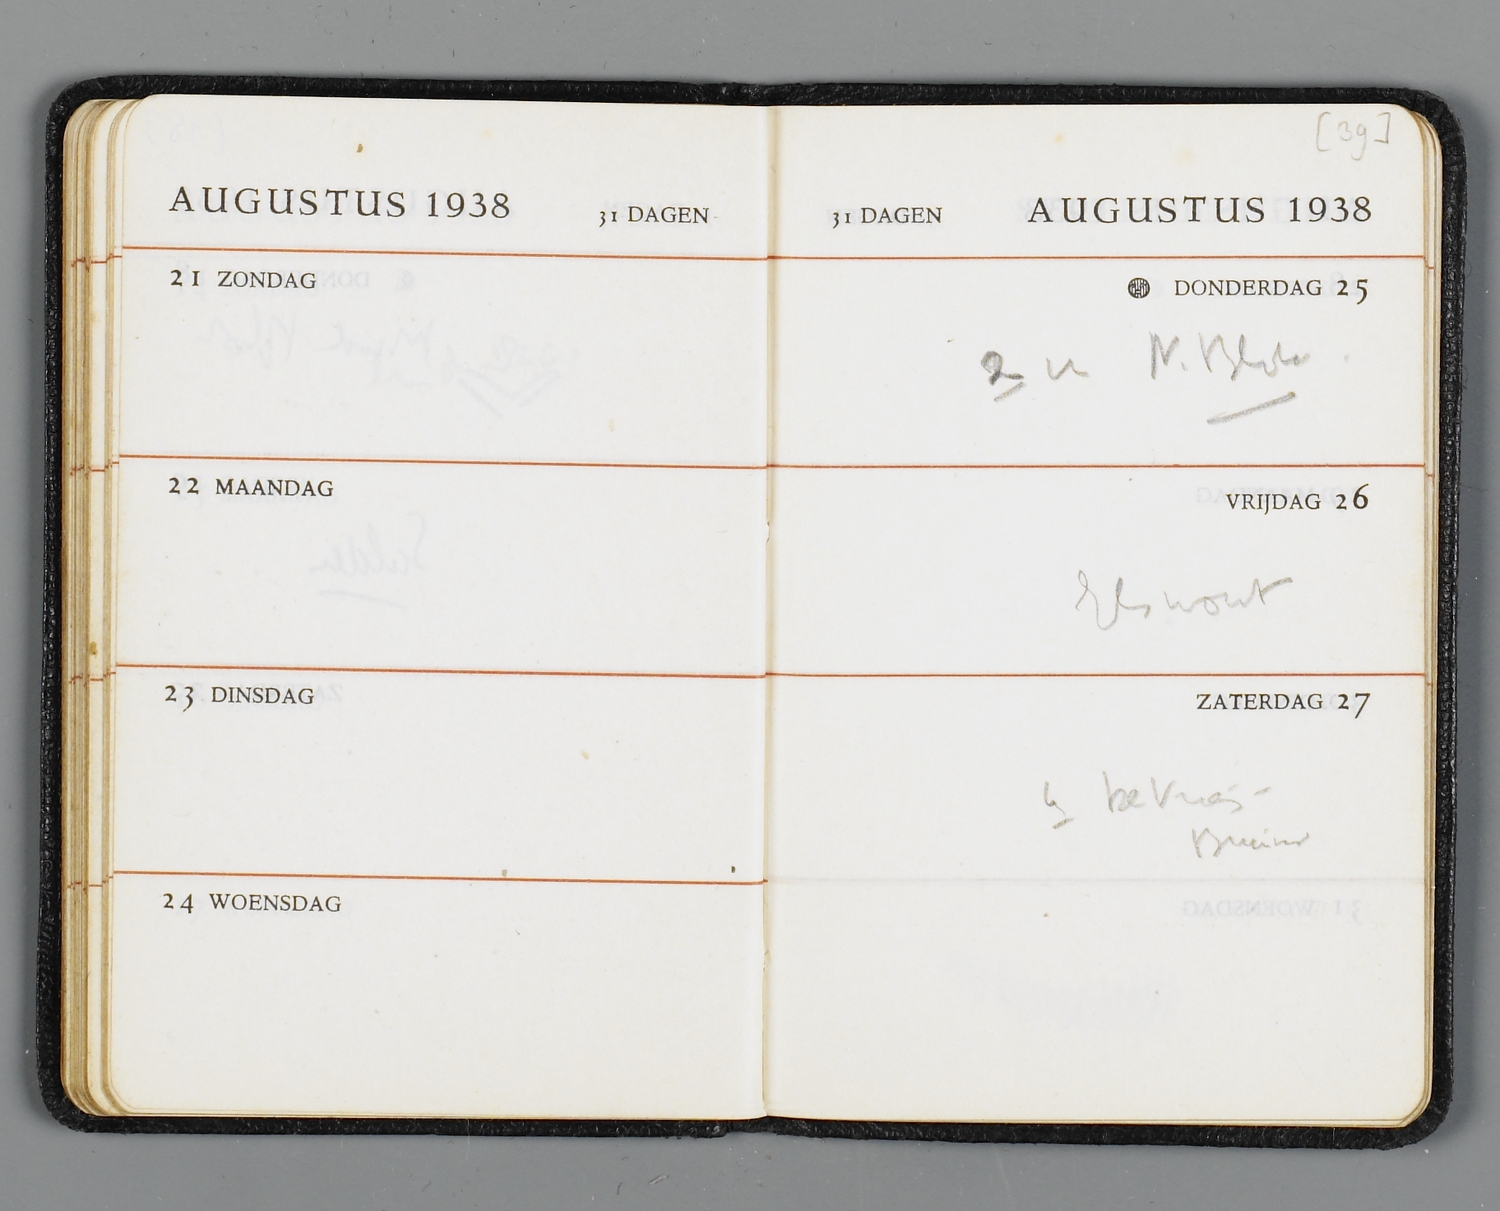 AUGUSTUS 1938 31 DAGEN
21 ZONDAG
22 MAANDAG
23 DINSDAG
24 WOENSDAG
[39]
31 DAGEN AUGUSTUS 1938
DONDERDAG 25
2 u N.
VRIJDAG 26
Elswout
ZATERDAG 27